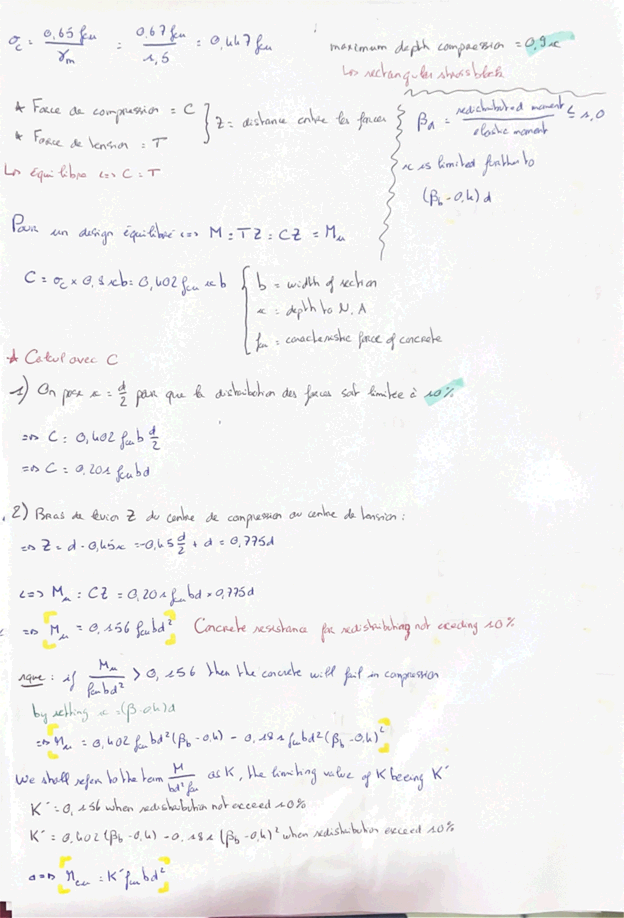 σc = 0,65 fcu / γm = 0,67 fcu / 1,5 = 0,447 fcu
maximum depth compression = 0,9x
↳ rectangular stress block
* Force de compression = C
* Force de tension = T
} Z = distance entre les forces
↳ équilibre <=> C = T
βd = redistributed moment / elastic moment ≤ 1,0
x is limited further to
(βb - 0,4) d
Pour un design équilibré <=> M = TZ = CZ = Mu
C = σc × 0,9 xb = 0,402 fcu xb
b = width of section
x = depth to N.A
fcu = caracteristic force of concrete
* Calcul avec C
1) On pose x = d/2 pour que la distribution des forces soit limitée à 10%
=> C = 0,402 fcu b d/2
=> C = 0,201 fcu bd
2) Bras de levier Z du centre de compression au centre de tension :
=> Z = d - 0,45x = -0,45 d/2 + d = 0,775d
<=> Mu = CZ = 0,201 fcu bd × 0,775d
=> Mu = 0,156 fcu bd² Concrete resistance for redistributing not exceding 10%
rque : if Mu / fcu bd² > 0,156 then the concrete will fail in compression
by setting x = (β-0,4)d
=> Mu = 0,402 fcu bd² (βb - 0,4) - 0,181 fcu bd² (βb - 0,4)²
We shall refer to the term M / bd² fcu as K, the limiting value of K beeing K'
K' = 0,156 when redistribution not exceed 10%
K' = 0,402 (βb - 0,4) - 0,181 (βb - 0,4)² when redistribution exceed 10%
==> Mcu = K' fcu bd²